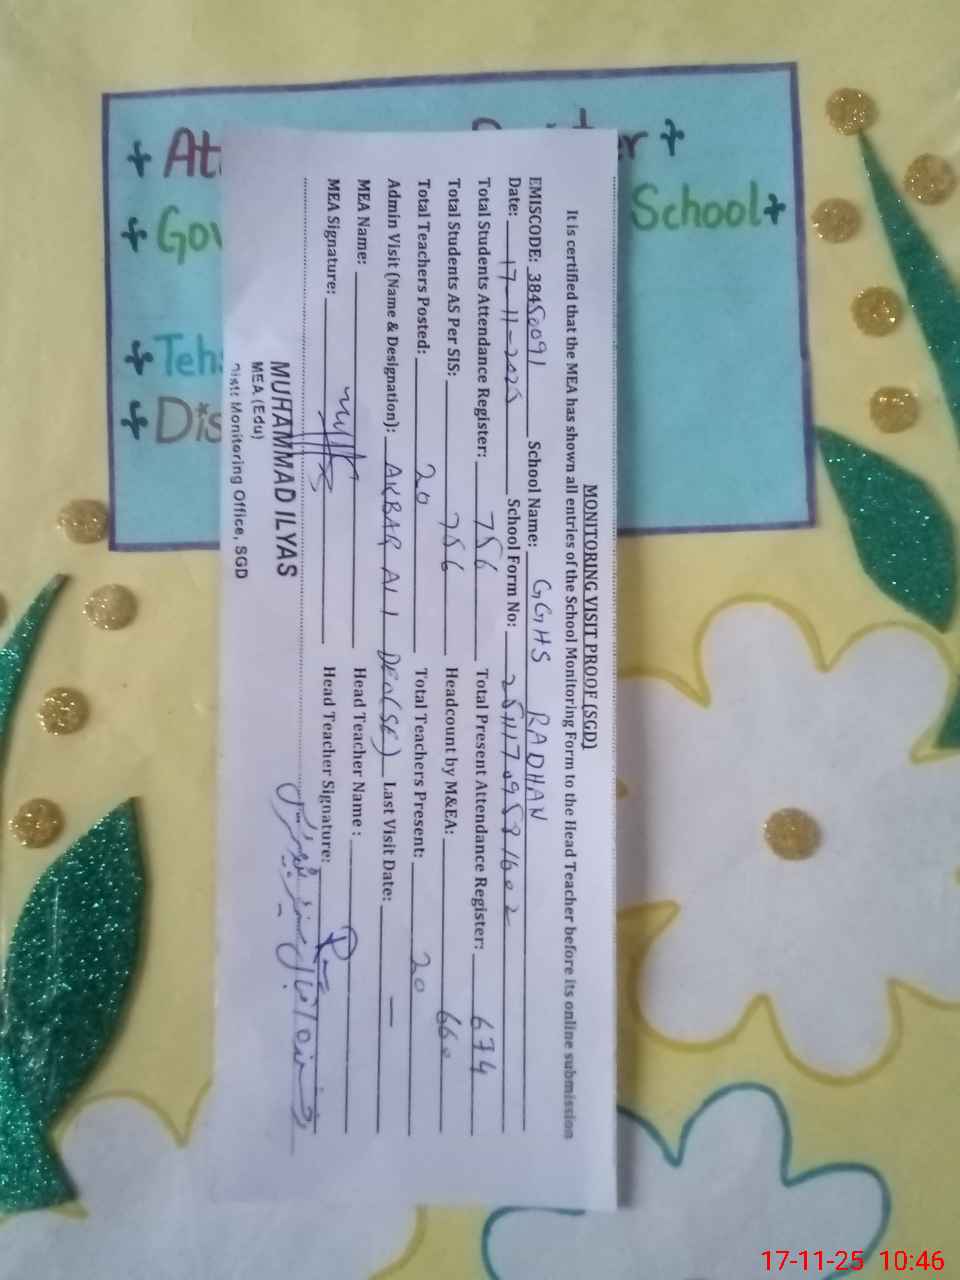 + Att
+ Gov School+
+ Teh
+ Dis
MONITORING VISIT PROOF [SGD]
It is certified that the MEA has shown all entries of the School Monitoring Form to the Head Teacher before its online submission
EMISCODE: 38450091 School Name: GGHS RADHAN
Date: 17-11-2025 School Form No:
Total Students Attendance Register: 756 Total Present Attendance Register: 674
Total Students AS Per SIS: 756 Headcount by M&EA: 660
Total Teachers Posted: 20 Total Teachers Present: 20
Admin Visit (Name & Designation): AKBAR ALI DEO(SE) Last Visit Date: —
MEA Name: Head Teacher Name :
MEA Signature: Head Teacher Signature:
MUHAMMAD ILYAS
MEA (Edu)
Distt: Monitoring Office, SGD
17-11-25 10:46